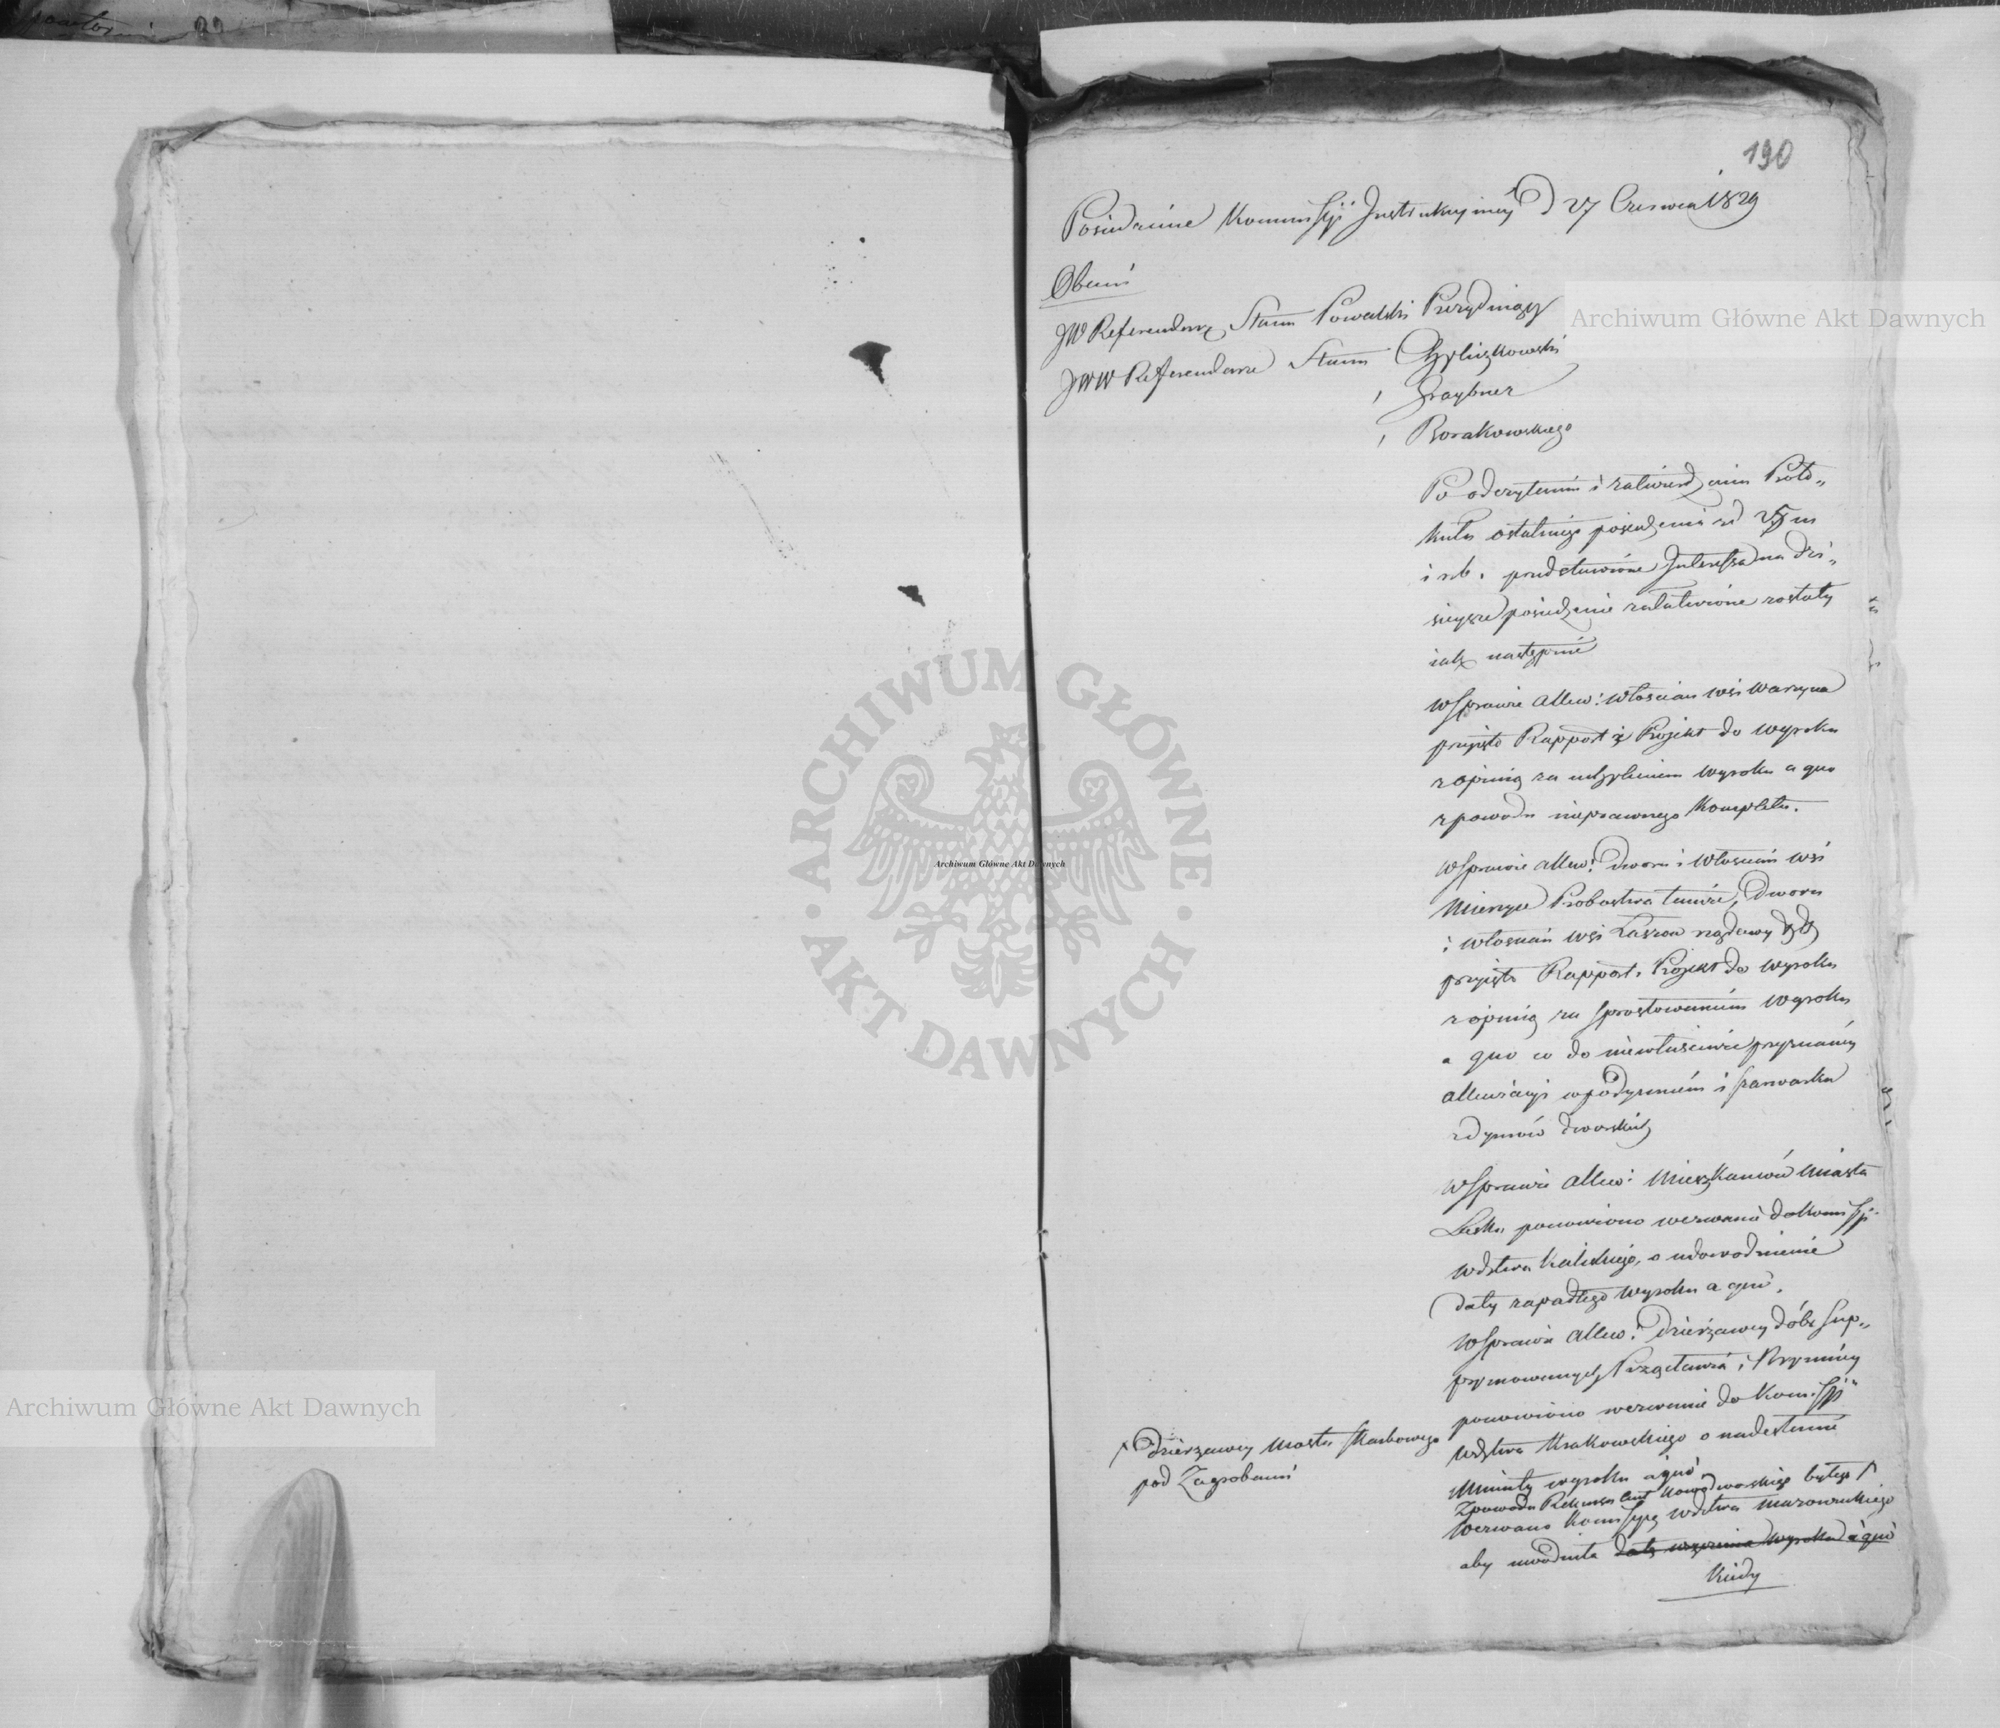 190
Posiedzenie Kommissyi Instrukcyiney d 27 Czerwca 1829
Obecni
JW Referendarz Stanu Powalski Prezyduiący
JWW Referendarze Stanu
" Graybner
" Borakowskiego
Po odczytaniu i zatwierdzeniu Proto„
kułu ostatniego posiedzenia z d 25 m
i r b. przedstawione Interessa na dzi„
sieysze posiedzenie załatwione zostały
iak następnie
W Sprawie Allew: Włościan wsi Warzyna
przyięto Rapport i Projekt do wyroku
z opinią za uchyleniem wyroku a quo
z powodu nieprawnego Kompletu.
W Sprawie Allew: Dworu i Włościan wsi
Mierzyce Probostwa tamże, Dworu
i Włościan wsi
przyięto Rapport i Projekt do wyroku
z opinią za sprostowaniem wyroku
a quo co do niewłaściwie przyznaney
allewiacyi w podymnem i szarwarku
z dymów dworskich
W Sprawie Allew: Mieszkańców Miasta
Łasku ponowiono wezwanie do Komissyi
Wdztwa Kaliskiego, o udowodnienie
daty zapadłego wyroku a quo.
W Sprawie Allew: Dzierżawcy dóbr Sup„
prymowanych i
ponowiono wezwanie do Komissyi
Wdztwa Krakowskiego o nadesłanie
Minuty wyroku a quo.
Z powodu Rekursu Nowodworskiego byłego /
/ Dzierżawcy Mostu Skarbowego
pod Zegrzem
Wezwano Komissyą Wdztwa Mazowieckiego
aby daty wyroku a quo
kiedy
Archiwum Główne Akt Dawnych
Archiwum Główne Akt Dawnych
Archiwum Główne Akt Dawnych
ARCHIWUM GŁÓWNE · AKT DAWNYCH ·